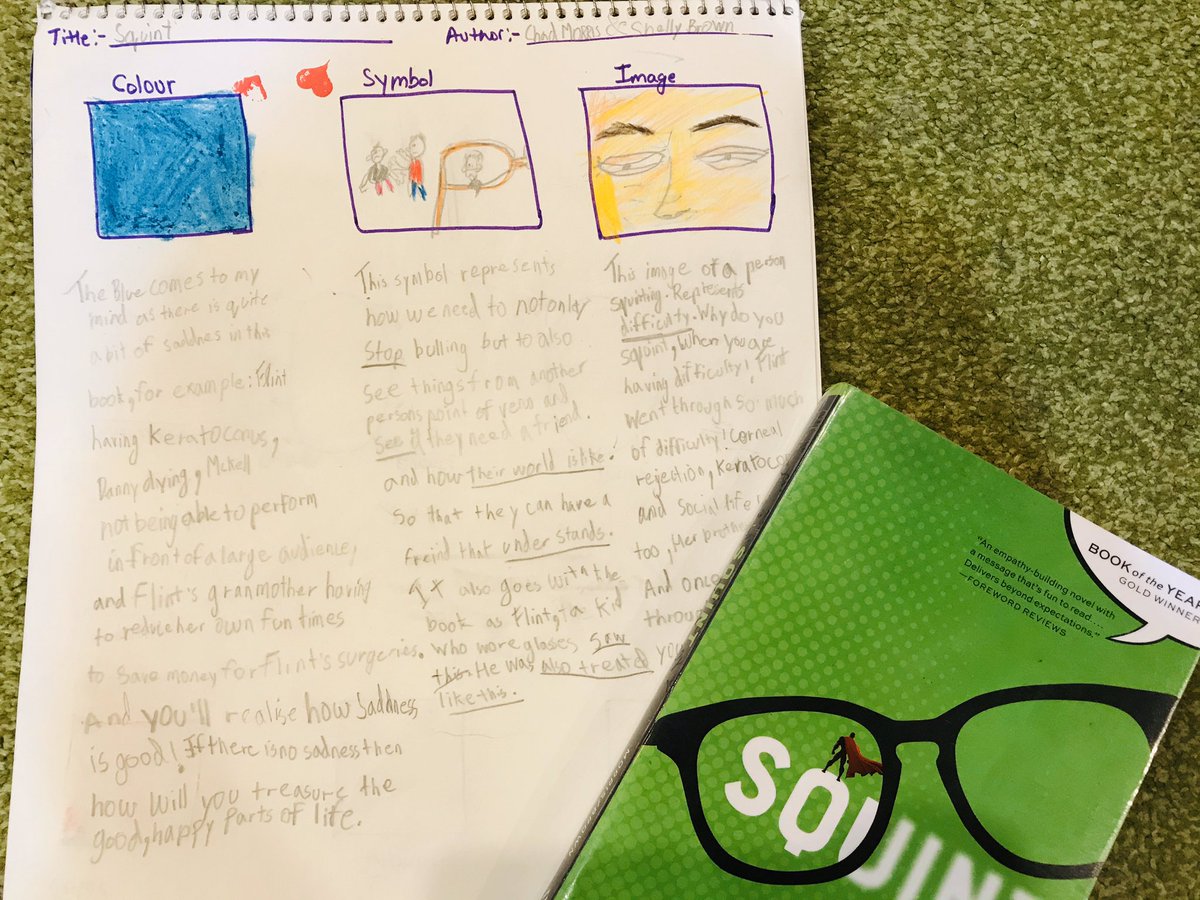 Title:- Squint
Author:- Chad Morris & Shelly Brown
Colour
Symbol
Image
The Blue comes to my
mind as there is quite
a bit of saddnes in this
book, for example: Flint
having Keratoconus,
Danny dying, McKell
not being able to perform
in front of a large audience,
and Flint's granmother having
to reduce her own fun times
to save money for Flint's surgeries.
And you'll realise how saddness
is good! If there is no sadness then
how will you treasure the
good, happy parts of life.
This symbol represents
how we need to not only
Stop bulling but to also
see things from another
persons point of and
see if they need a friend.
and how their world is like!
So that they can have a
freind that under stands.
It also goes with the
book as Flint, a kid
who wore glases, saw
this. He was also treated
like this.
This image of a person
squinting. Represents
difficulty. Why do you
squint, When you are
having difficulty! Flint
went through so much
of difficulty! Corneal
rejection, Keratoco
and social life!
too, Her brothe
And once
throu
you
BOOK of the YEAR
GOLD WINNER
"An empathy-building novel with
a message that's fun to read. . . .
Delivers beyond expectations."
—FOREWORD REVIEWS
SQUINT